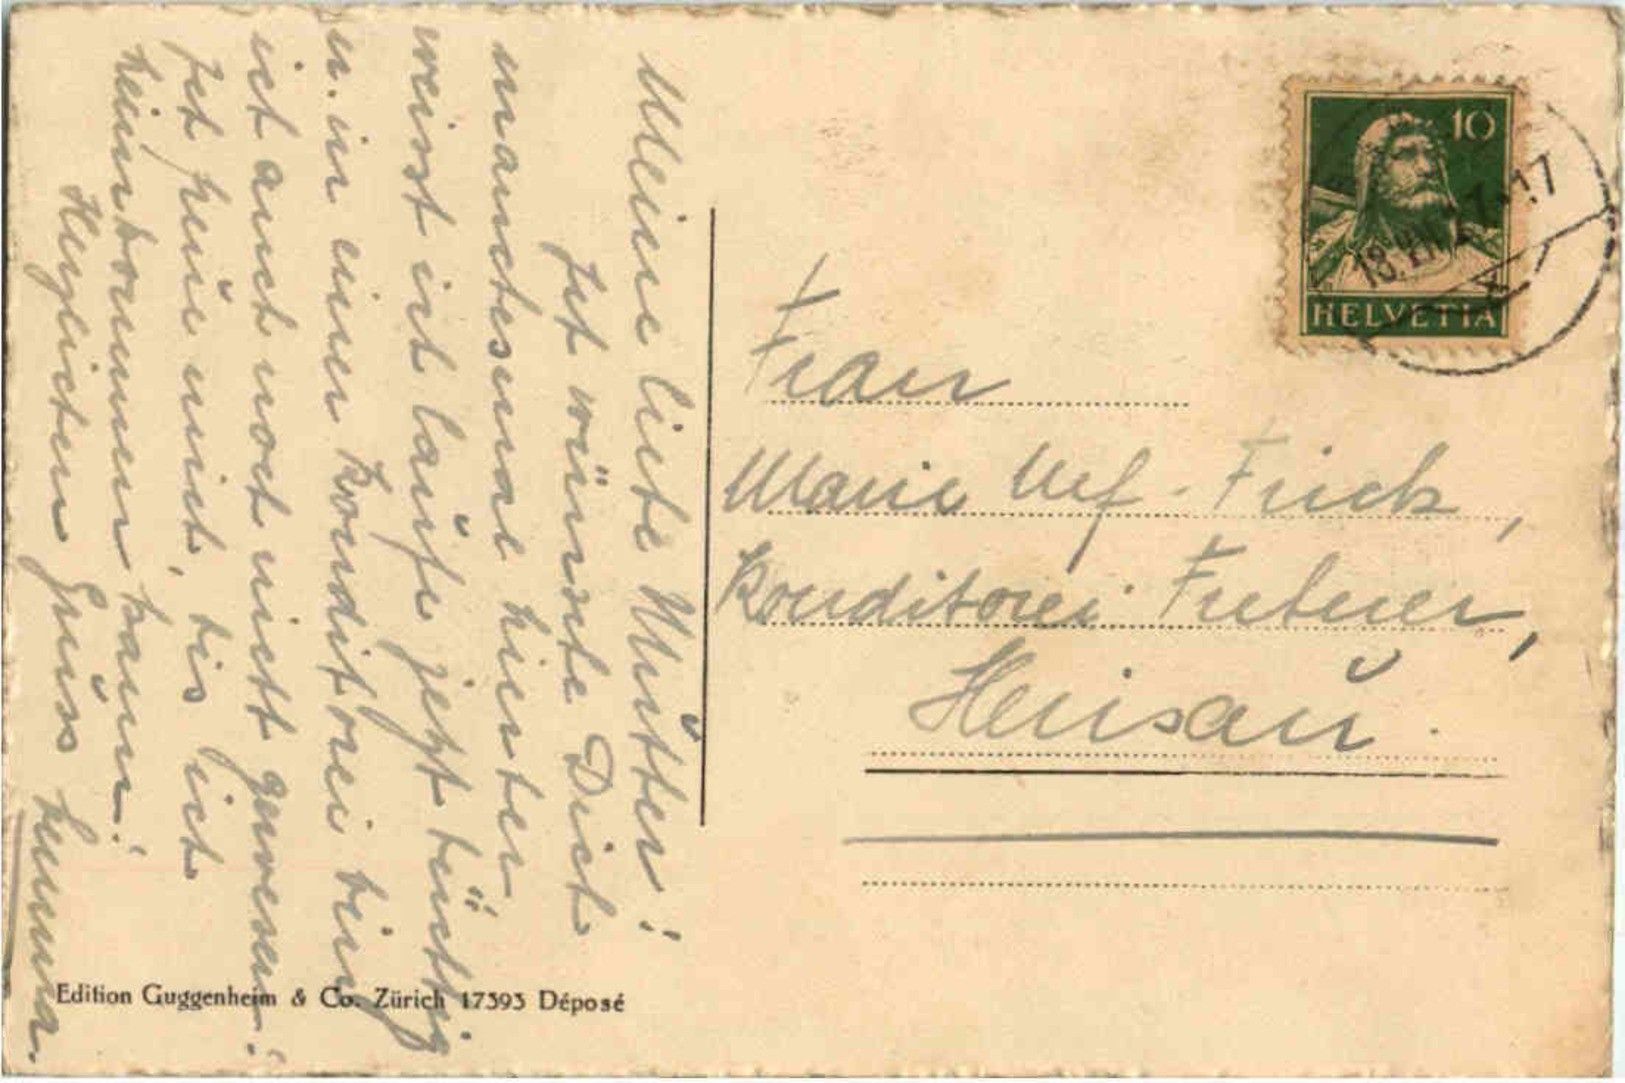 Meine liebe Mutter!
Ich wünschte Dich
manchesmal hierher
weisst ich laufe jetzt tüchtig
u. in einer Konditorei bin
ich auch noch nicht gewesen!
Ich freue mich, bis ich
heimkommen kann!
Herzlichen Gruss Emma.
Edition Guggenheim & Co. Zürich 17393 Déposé
10
HELVETIA
17
Frau
Marie Nef-Frick,
Konditorei Frehner,
Herisau.